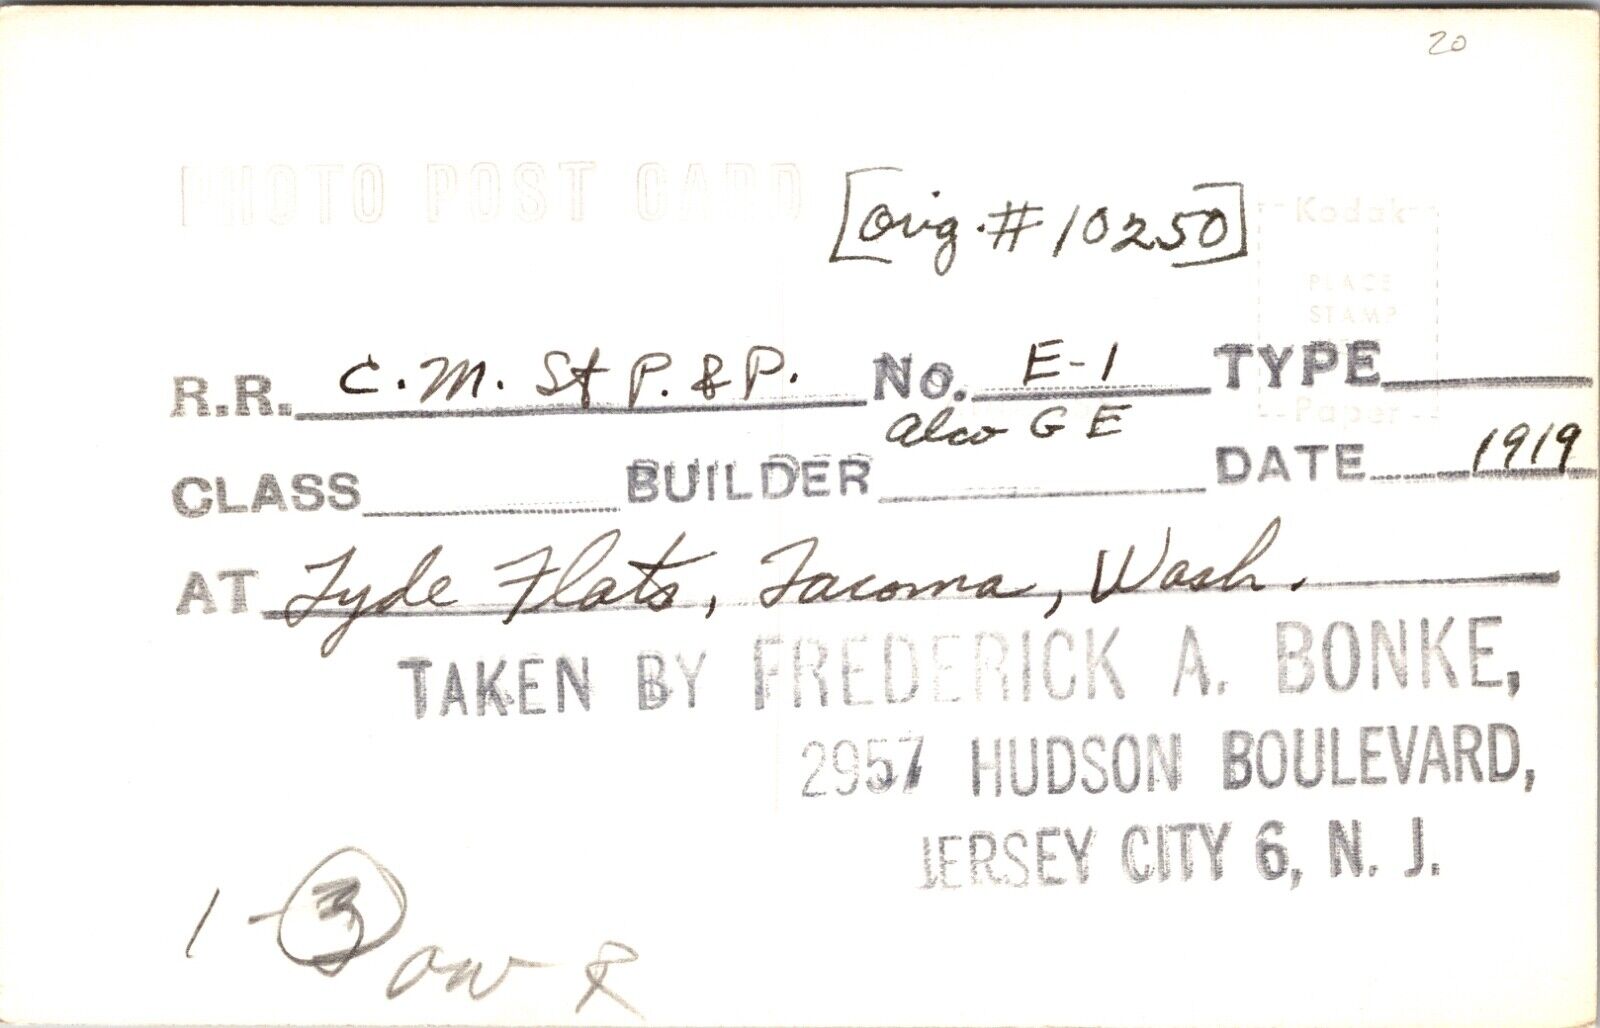 20
PHOTO POST CARD
[Orig. # 10250]
Kodak
PLACE
STAMP
Paper
R.R. C. M. St P. & P. No. E-1 TYPE
CLASS BUILDER Alco G E DATE 1919
AT Tyde Flats, Tacoma, Wash.
TAKEN BY FREDERICK A. BONKE,
2957 HUDSON BOULEVARD,
JERSEY CITY 6, N. J.
1-3